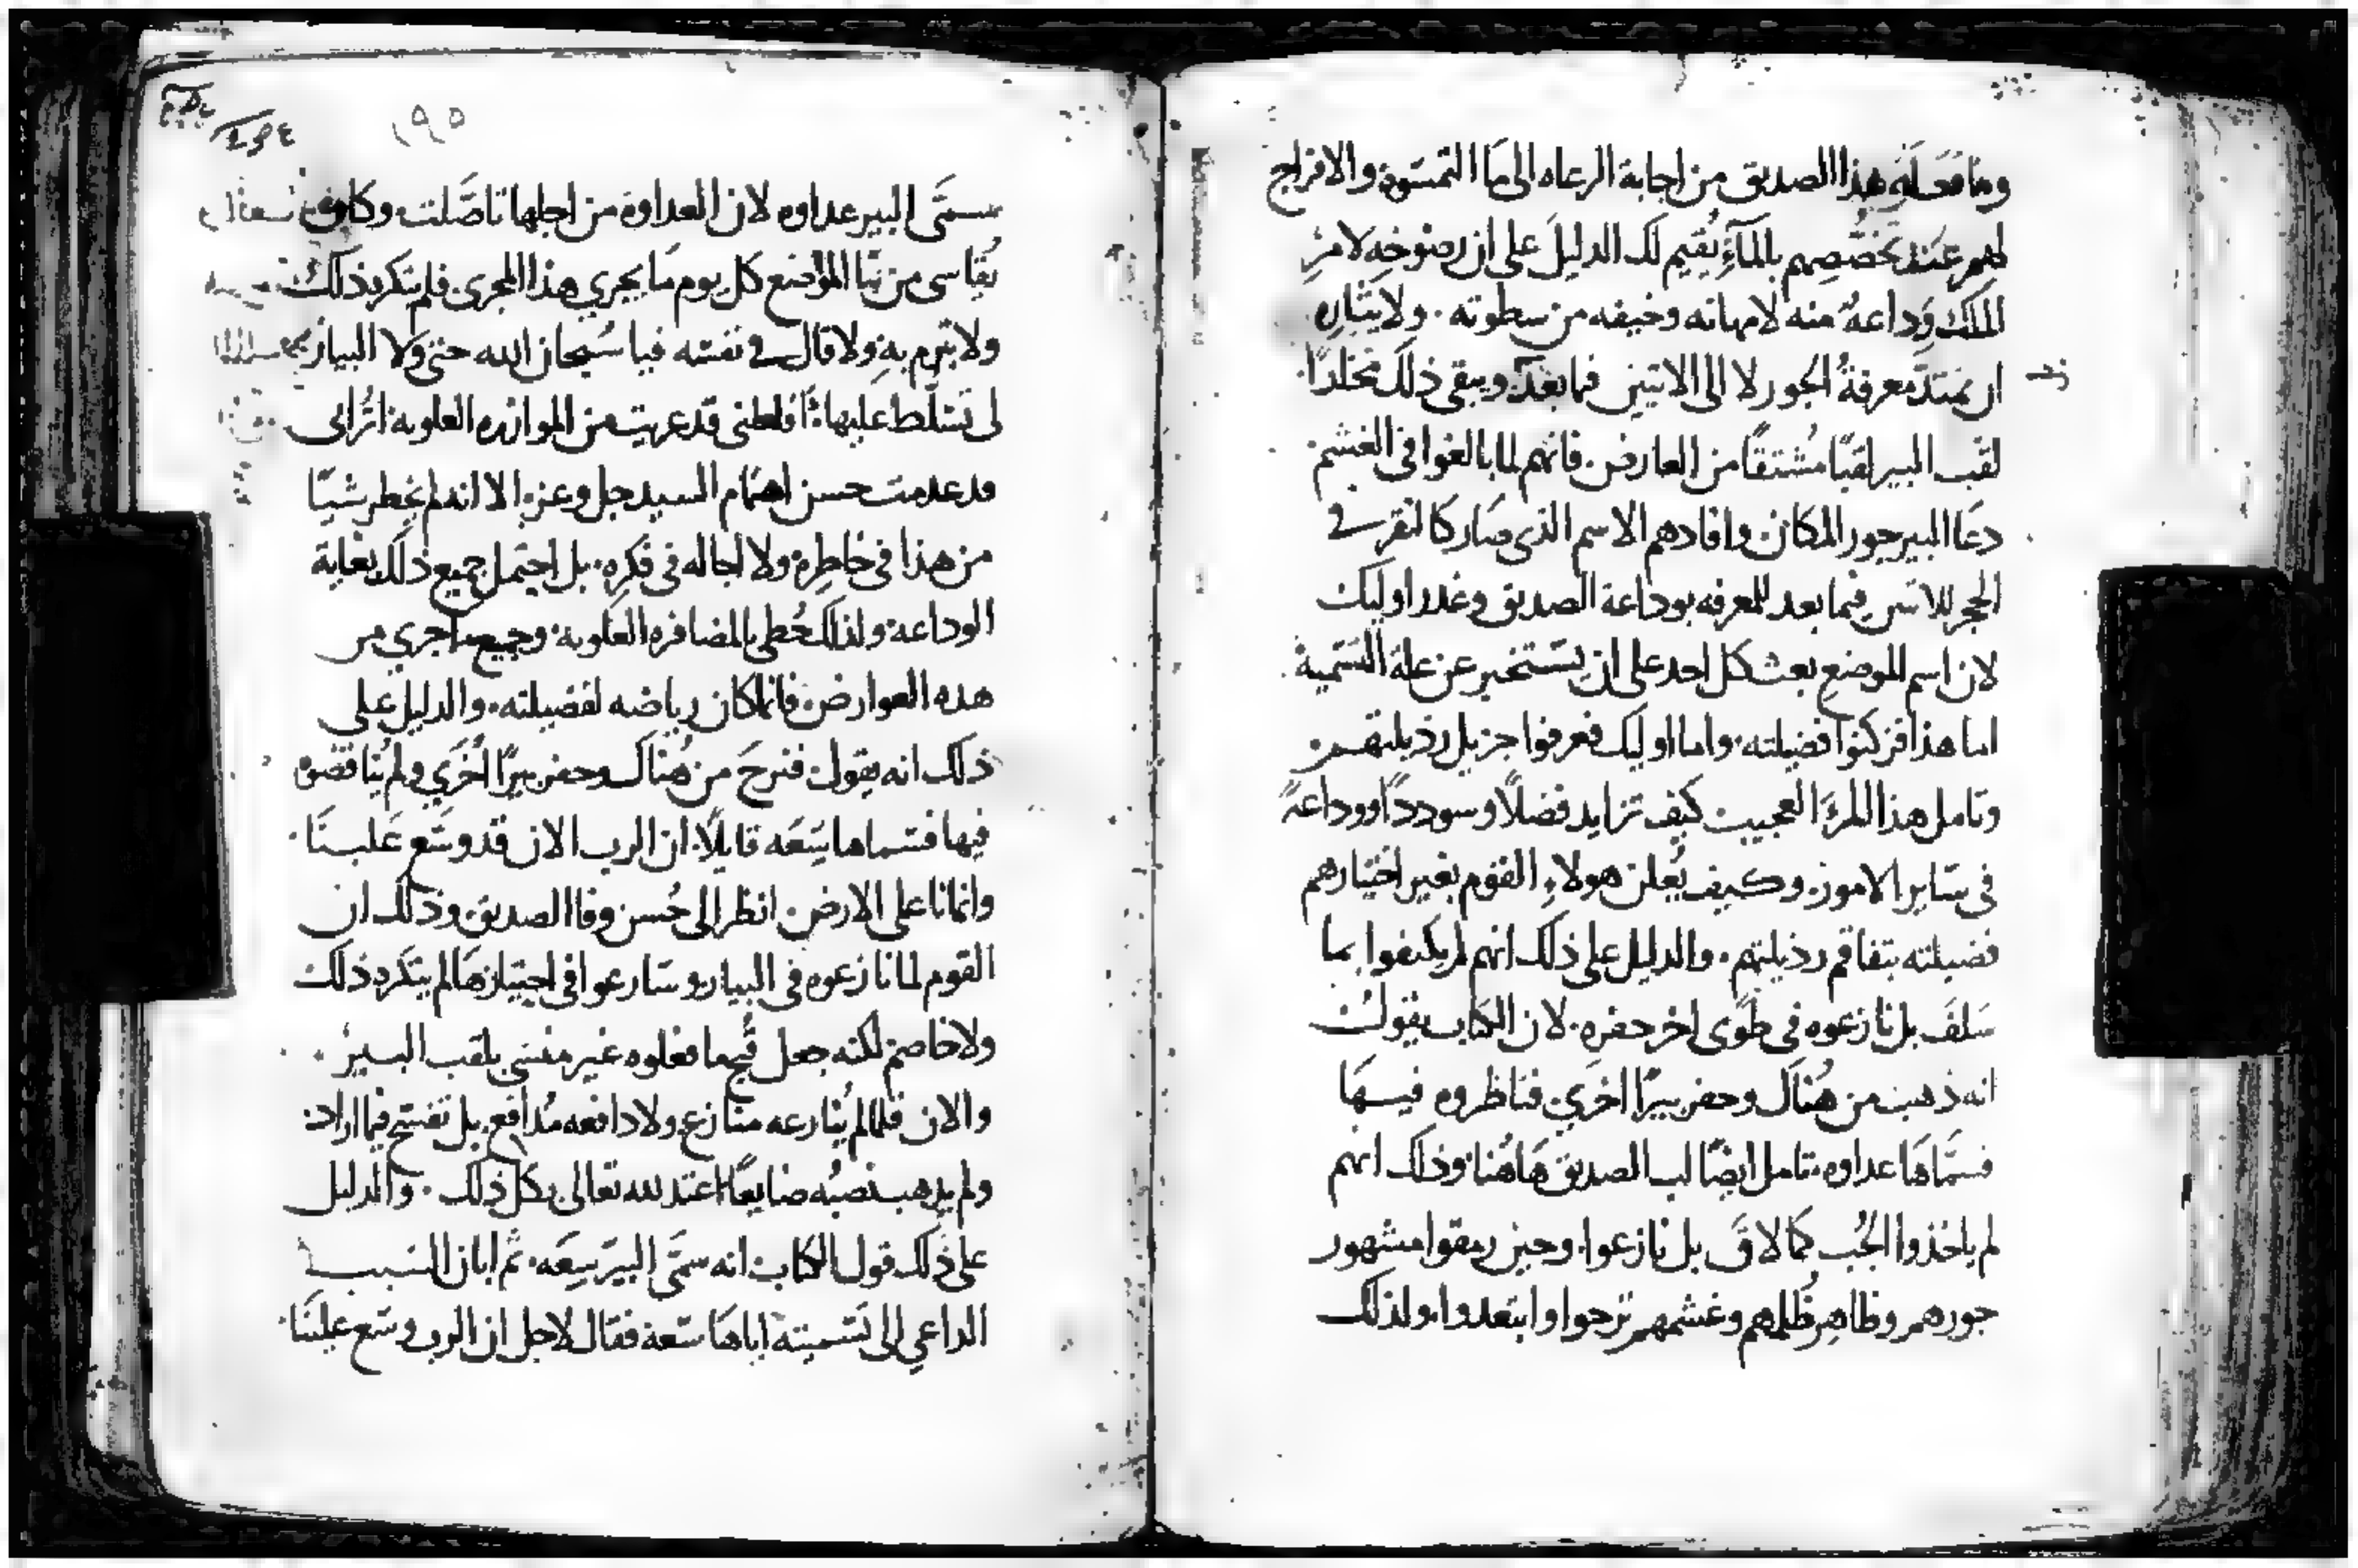 وما فعله هذا الصديق من اجابة الرعاه الى ما التمسوه والافراج
لهم عند تخصصهم بالمآءِ يُقيم لك الدليلَ على ان رضوخه لامرِ
الملك وداعةً منه لا مهانه وخيفه من سطوته. ولايثاره
ان تمتدَّ معرفةُ الجور لا الى الاتيين فما بعد. ويبقى ذلك مخلدًا
لقب البير لقبًا مُشتقًا من العارض. فانهم لما بالغوا في الغشم
دعا البير جور المكان وافادهم الاسم الذى صار كالنقر في
الحجر للاتين فيما بعد للمعرفه بوداعة الصديق وغدر اوليك
لان اسم الموضع بعث كل احد على ان يستخبر عن علة التسمية
اما هذا فزكنوا فضيلته. واما اوليك فعرفوا جزيل رذيلتهم.
وتامل هذا المرءَ العجيب كيف تزايد فضلًا وسوددًا ووداعةً
في ساير الامور. وكيف يُعلن هولاءِ القوم بغير اختيارهم
فضيلته بتفاقم رذيلتهم. والدليل على ذلك انهم لم يكتفوا بما
سَلفَ بل نازعوه في طَوى اخر حفره. لان الكتاب يقول
انه ذهب من هُناك وحفر بيرًا اخرى فناظروه فيها
فسمَّاها عداوه. تامل ايضًا لب الصديق هاهُنا. وذلك انهم
لم ياخذوا الجُب كما لاق بل نازعوا. وحين رمقوا مشهور
جورهم وظاهِر ظُلمهم وغشمهم نزحوا وابتعدوا. ولذلك
١٩٥
سمَّى البير عداوه لان العداوة من اجلها تاصَّلت وكان
يُقاسى من نبا الموضع كل يوم ما يجري هذا المجرى. فلم يتكره ذلك
ولا تبرم به ولا قال في نفسه فيا سُبحان الله حتى ولا البيار
لى تسلُّط عليها. افلعلنى قد عريت من الموازره العلويه. اترانى
قد عدمت حسن اهتمام السيد جل وعز. الا انه لم يخطر شيًا
من هذا في خاطره ولا اجاله في فكره. بل احتمل جميع ذلك بغاية
الوداعه ولذلك حُظى بالمضافره العلويه. وجميع ما جري من
هذه العوارض. فانما كان رياضه لفضيلته. والدليل على
ذلك انه يقول. فنزحَ من هُناك وحفر بيرًا اخرَي ولم يُناقضوه
فيها فسماها سِعَه قايلًا. ان الرب الان قد وسَّع عَلينَا.
وانمانا على الارض. انظر الى حُسن وفا الصديق. وذلك ان
القوم لما نازعوه في البيار وسارعوا في اجتيازها لم يتكره ذلك
ولا خاصم لكنه جعل قُبح ما فعلوه غير منسي بلقب البير.
والان فلما لم يُنازعه منازع ولا دافعه مُدافع. بل تفسح فيما اراد.
ولم يذهب نصبُه ضايعًا. اعتد لله تعالى بكل ذلك. والدليل
على ذلك قول الكتاب انه سمَّى البير سِعَه. ثم ابان السبب
الداعي الى تسميته اياها سعة فقال لاجل ان الرب وسَّع علينَا.